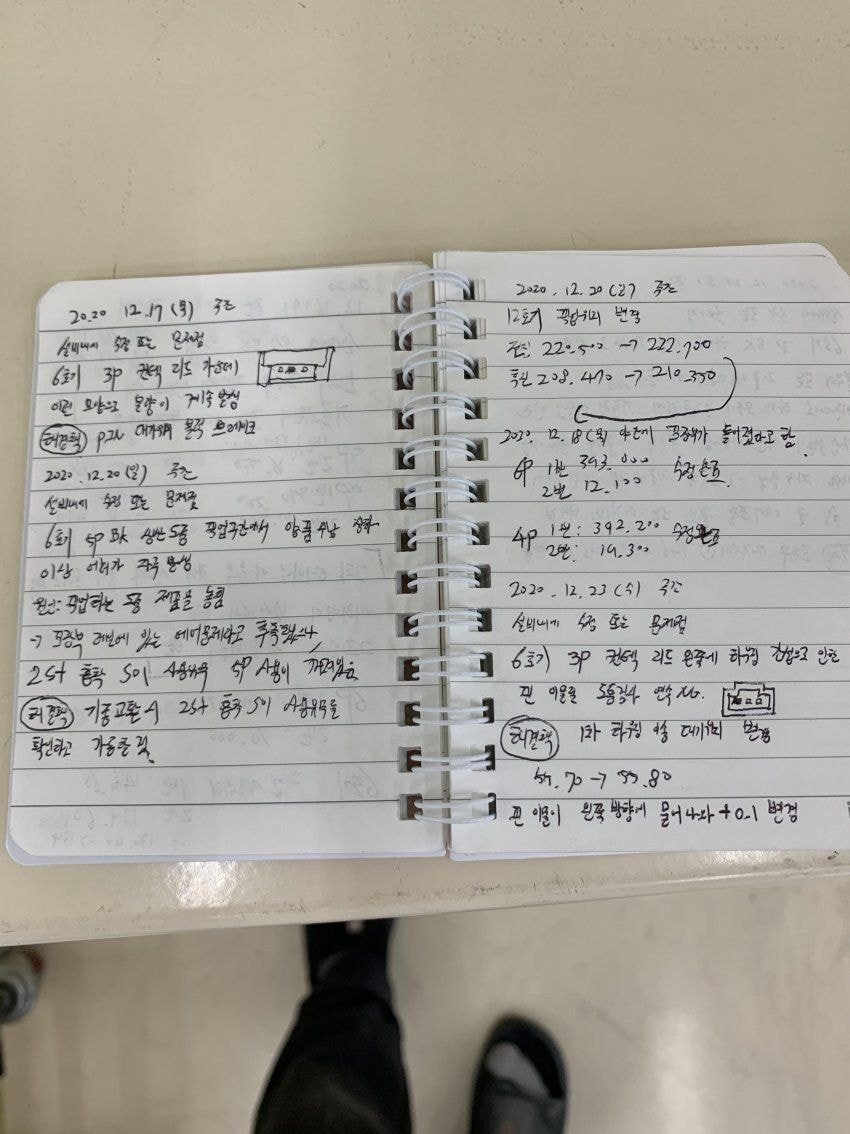 2020 12.17 (목) 주간
설비내에 수정 또는 문제점
6호기 3P 컨텍 리드 가운데
이런 모양으로 불량이 계속 발생
해결책
2020. 12.20 (일) 주간
설비내에 수정 또는 문제점
6호기 5P BK 생산 도중 작업구간에서 양품
이상 에러가 자주 발생
원인: 작업하는 도중 제품을 놓침
→ 있는 에어문제라고 추측했으나
2st 흡착 5이 사용유무 5P 사용이 꺼져있음
해결책 기종교환시 2st 흡착 5이 사용유무를
확인하고 가동할 것.
2020. 12.20 주간
12호기 변경
220.500 → 222.700
208.470 → 210.350
2020. 12.18 (목) 야간에 들어졌다고 함.
6P 1번 393.000 수정완료
2번 12.100
4P 1번: 392.200 수정완료
2번: 19.300
2020. 12.23 (수) 주간
설비내에 수정 또는 문제점
6호기 3P 컨텍 리드 왼쪽에 하우징 으로 인한
핀 이물 도통검사 연속 NG.
해결책 1차 하우징 이송 대기위치 변경
55.70 → 55.80
핀 이물이 왼쪽 방향에 묻어나와 +0.1 변경